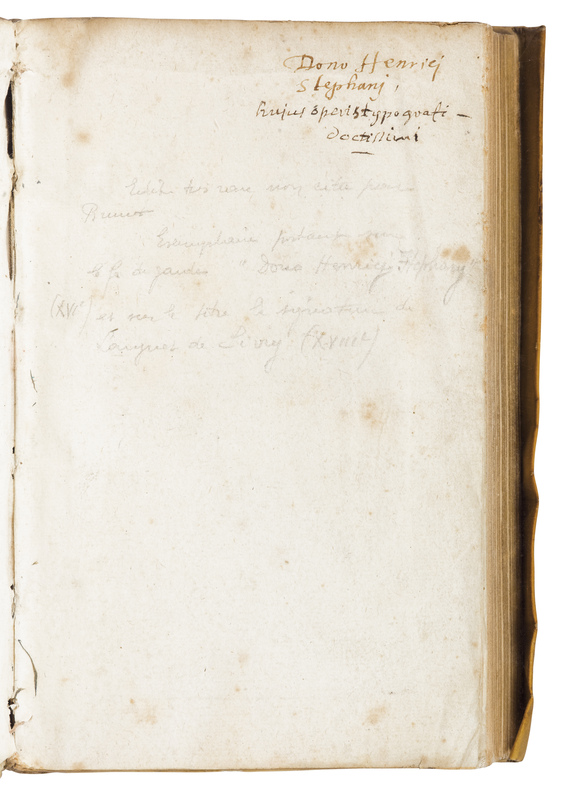 Dono Henricj
Stephanj,
hujus operis typografi
Doctissimi
très rare, non cité par
Brunet
Exemplaire portant sur
la f. de garde "Dono Henricj Stephanj"
(XVIe) et sur le titre la signature de
de Livry (XVIIIe)